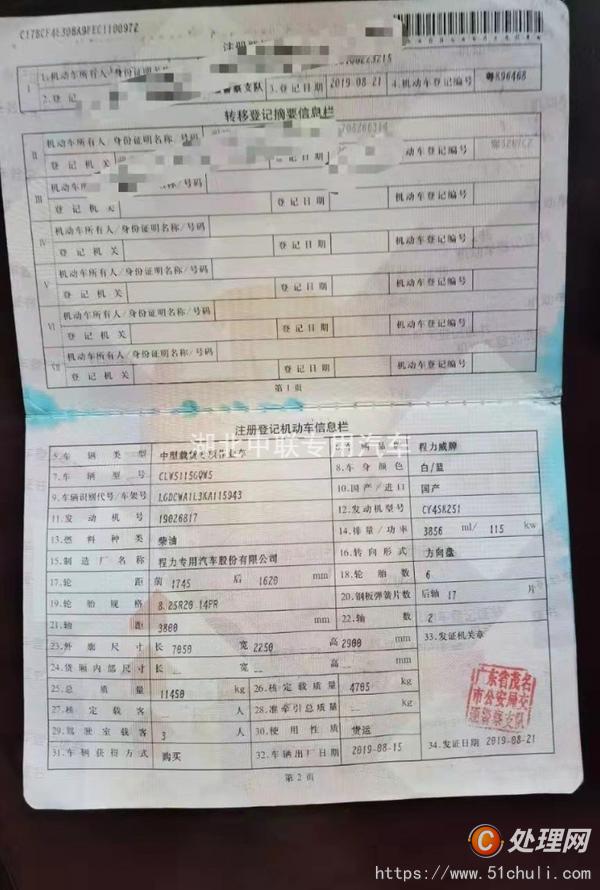 C178CF4L308A9FEC110097Z
注册登
I 1.机动车所有人/身份证明名称/
2.登记 警察支队 3.登记日期 2019-08-21 4.机动车登记编号 粤K96468
转移登记摘要信息栏
II 机动车所有人/身份证明名称/号码
登记机关 登记日期 机动车登记编号
III 机动车所 /号码
登记机关 登记日期 机动车登记编号
IV 机动车所有人/身份证明名称/号码
登记机关 登记日期 机动车登记编号
V 机动车所有人/身份证明名称/号码
登记机关 登记日期 机动车登记编号
VI 机动车所有人/身份证明名称/号码
登记机关 登记日期 机动车登记编号
VII 机动车所有人/身份证明名称/号码
登记机关 登记日期 机动车登记编号
第1页
注册登记机动车信息栏
湖北中联专用汽车
5.车辆类型 中型载货 程力威牌
7.车辆型号 CLW5115GQW5 8.车身颜色 白/蓝
9.车辆识别代号/车架号 LGDCWA1L3KA115943 10.国产/进口 国产
11.发动机号 19026817 12.发动机型号 CY4SK251
13.燃料种类 柴油 14.排量/功率 3856 ml/ 115 kw
15.制造厂名称 程力专用汽车股份有限公司 16.转向形式 方向盘
17.轮距 前 1745 后 1620 mm 18.轮胎数 6
19.轮胎规格 8.25R20 14PR 20.钢板弹簧片数 后轴 17 片
21.轴距 3800 mm 22.轴数 2
23.外廓尺寸 长 7050 宽 2250 高 2900 mm 33.发证机关章
24.货厢内部尺寸 长 — 宽 — 高 — mm
25.总质量 11450 kg 26.核定载质量 4705 kg
27.核定载客 — 人 28.准牵引总质量 — kg
29.驾驶室载客 3 人 30.使用性质 货运
广东省茂名
市公安局交
通警察支队
31.车辆获得方式 购买 32.车辆出厂日期 2019-08-15 34.发证日期 2019-08-21
第2页
C 处理网
https://www.51chuli.com